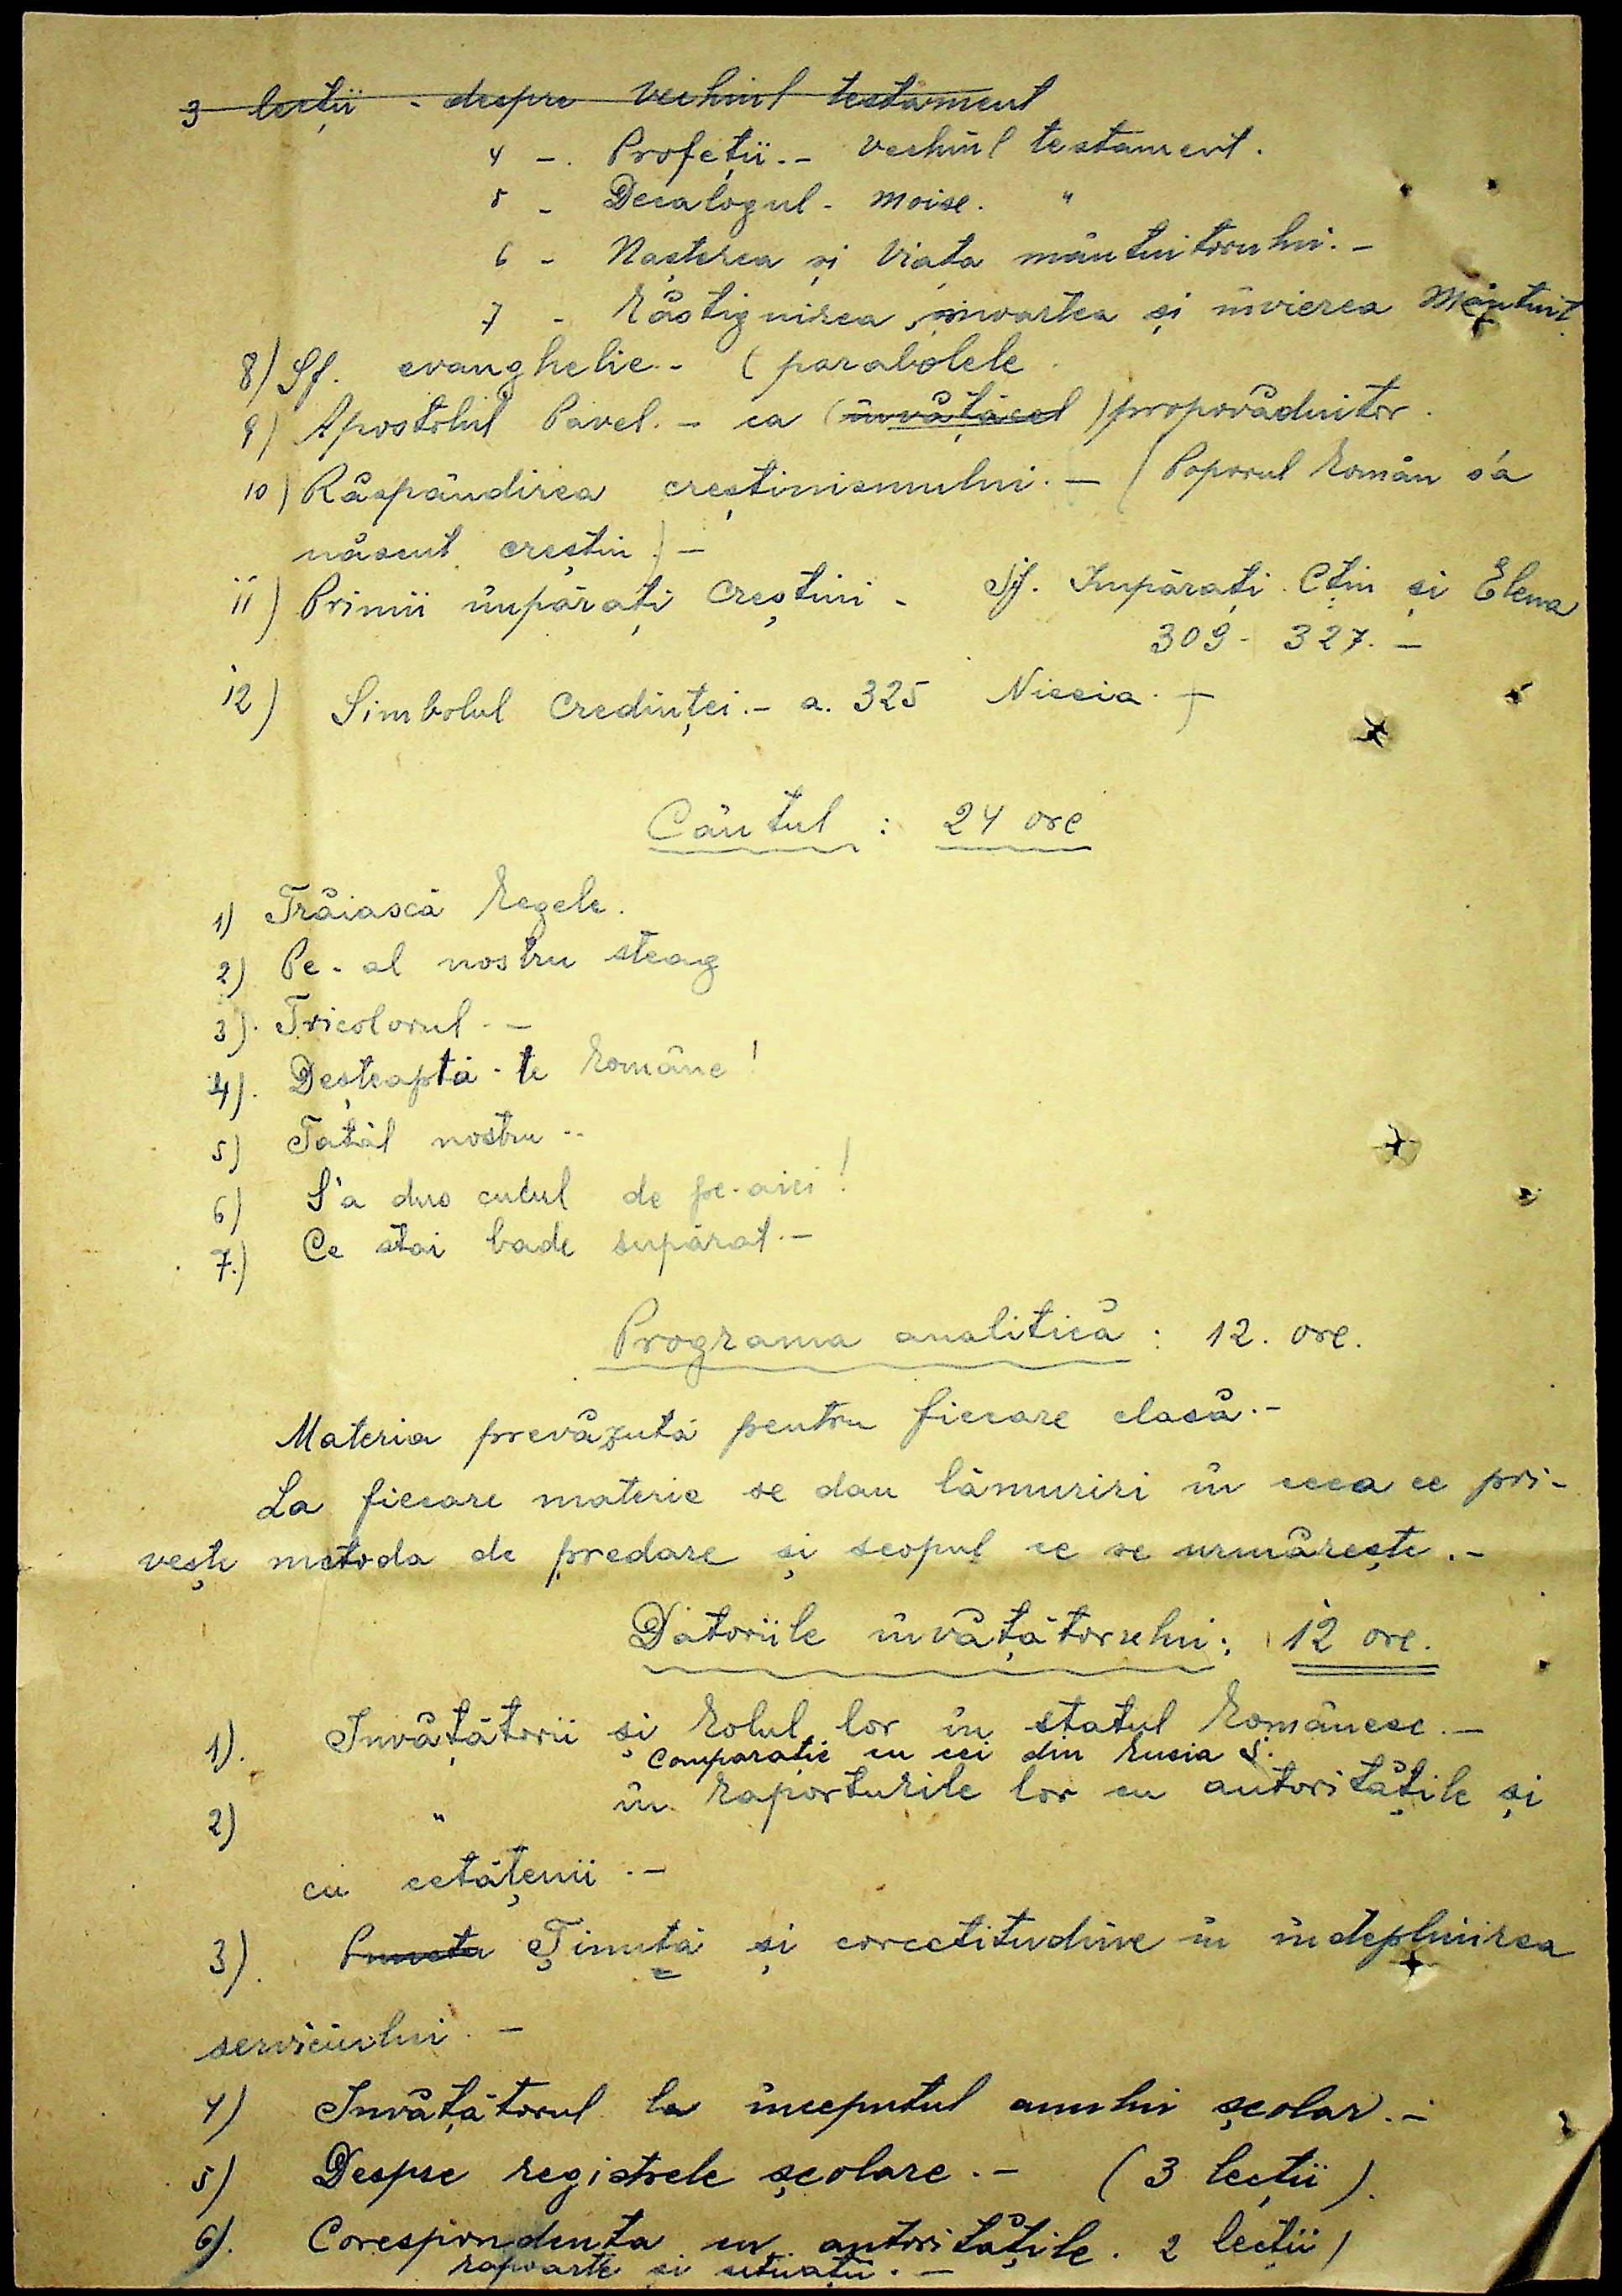 3 lecții - despre Vechiul testament
4 -. Profeții.- Vechiul testament.
5 - Decalogul - Moise. "
6 - Nașterea și Viața mântuitorului.-
7 - Răstignirea, moartea și învierea Mântuit.
8) Sf. evanghelie.- (parabolele
9) Apostolul Pavel.- ca (învățăcel) propovăduitor.
10) Răspândirea creștinismului.- (Poporul Român s'a
născut creștin) -
11) Primii împărați Creștini - Sf. Impărați Ctin și Elena
309 - 327.-
12) Simbolul Credinței.- a. 325 Niceia.-
Cântul : 24 ore
1) Trăiască Regele.
2) Pe-al nostru steag
3). Tricolorul.-
4). Deșteaptă-te Române!
5) Tatăl nostru..
6) S'a dus cucul de pe-aici!
7.) Ce stai bade supărat.-
Programa analitică : 12. ore.
Materia prevăzută pentru fiecare clasă.-
La fiecare materie se dau lămuriri în ceea ce pri-
vește metoda de predare și scopul ce se urmărește.-
Datoriile învățătorului: 12 ore.
1). Învățătorii și Rolul lor în statul Românesc.-
Comparație cu cei din Rusia S.
2) " în Raporturile lor cu autoritățile și
cu cetățenii.-
3). Ținută și corectitudine în îndeplinirea
serviciului.-
4) Învățătorul la începutul anului școlar.-
5) Despre registrele școlare.- (3 lecții).
6). Corespondența cu autoritățile. 2 lecții)
rapoarte și situații.-